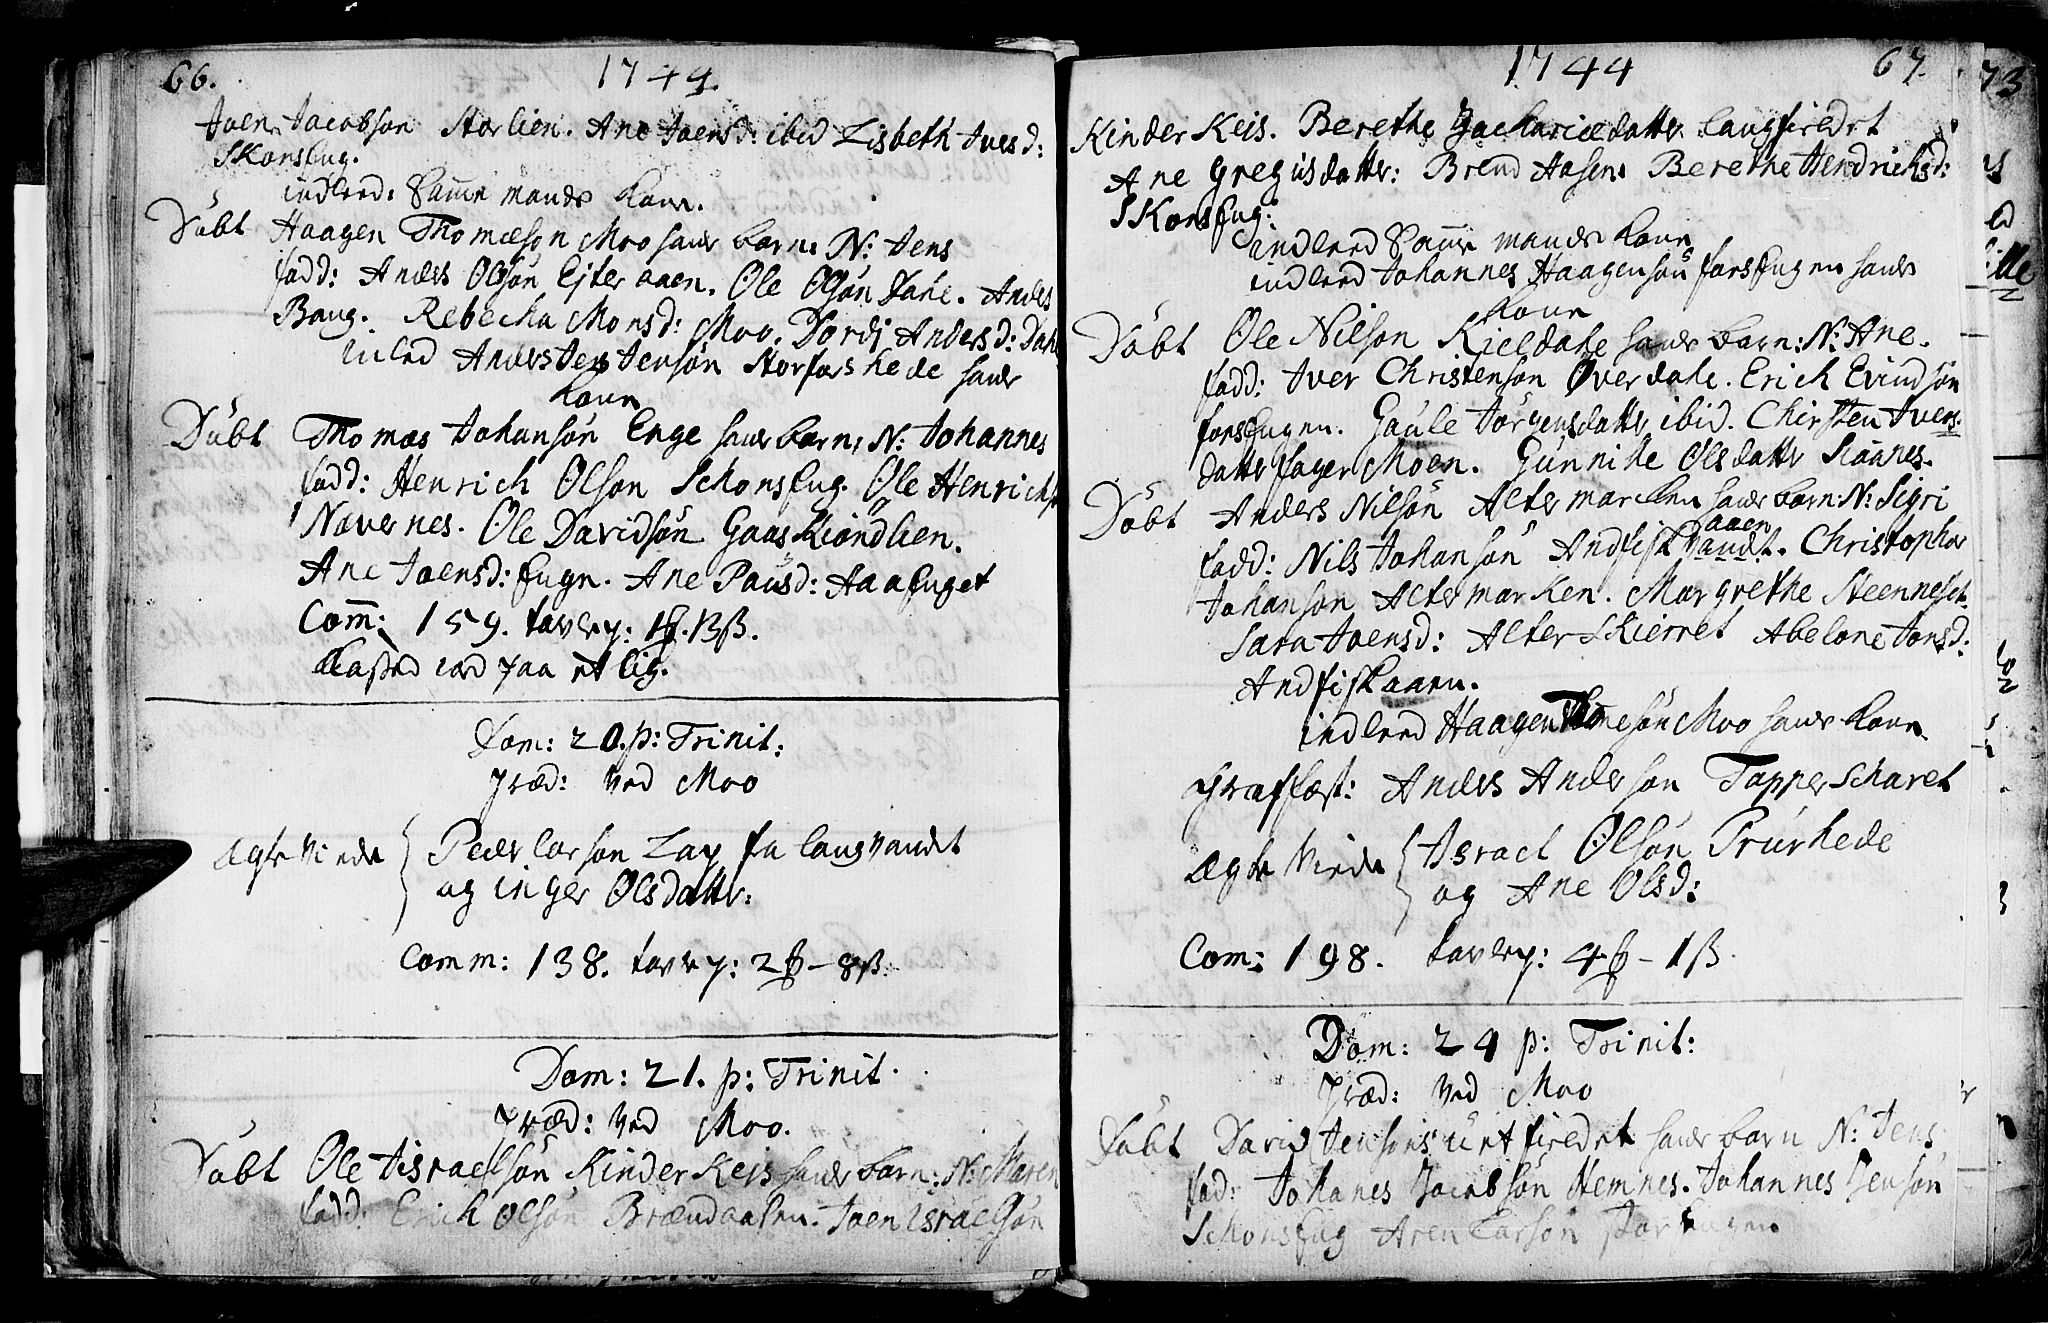 66. 1744.
Joen Jacobsøn Storlien. Ane Joensd: ibid Lisbeth Ivesd:
Skonseng.
indleed: Samme mands kone.
Døbt Haagen Thomæsøn Moo hands barn: N: Jens
fadd: Anders Olsøn Ejteraaen. Ole Olsøn Dahl. Anders
Baug. Rebecha Monsd: Moo. Dordi Andersd: Dahl
inled Anders Jensøn Storforshede hands
kone
Døbt Thomas Johansøn Enge hands barn: N: Johannes
fadd: Henrich Olsøn Schonseng. Ole Henrichs
Nævernes. Ole Davidsøn Gaaskiøndlien.
Ane Joensd: Engn. Ane Paulsd: Aaenget
Com̄: 159. tavlep: 1ß. 13ß.
kasted iord paa et lig.
Dom: 20. p: Trinit:
Præd: ved Moo
Ægte Viede Peder Larsøn Lap fra Langvandet
og inger Olsdatter:
Comm: 138. tavlep: 2ß - 8ß.
Dom: 21. p: Trinit.
Præd: ved Moo.
Døbt Ole Jisraelsøn Kinderkeis hands barn: N: Maren
fadd: Erich Olsøn Brændaasen. Joen Israelsøn
1744 67.
Kinderkeis. Berethe Zachariædatter Langfiedet
Ane Gregusdatter: Brend Aasen. Berethe Hendrichsd:
Skonseng:
indleed Samme mands kone
indleed Johannes Haagensøn forsEngen hands
kone
Døbt Ole Nilsøn Kieldahl hands barn: N: Ane.
fadd: Iver Christensøn Øverdahl. Erich Evindsøn
forsEngen. Gaule Jørgensdatter ibid. Chirsten Ivers-
datter fagerMoen. Gunnille Olsdatter Skaanes.
Døbt Anders Nilsøn Altermarcken hands barn: N: Sigri
aaen
fadd: Nils Johansøn Andfiskvandt. Christopher
Johansøn Altermarken. Margrethe Steenneset.
Sara Joensd: Alterskierret Abelone Jonsd:
Andfiskaaen.
indleed Haagen Thomesøn Moo hands kone
Graffæst: Anders Andersøn Tapperscharet
Ægte Viede Jsrael Olsøn Prurhede
og Ane Olsd:
Com: 198. tavlep: 4ß - 1ß.
Dom: 24 p: Trinit:
Præd: ved Moo
Døbt David Jensøn fiedet hands barn N: Jens
fad: Johanes Jacobsøn Hemnes. Johannes Jensøn
Schonseng Aren Larsøn